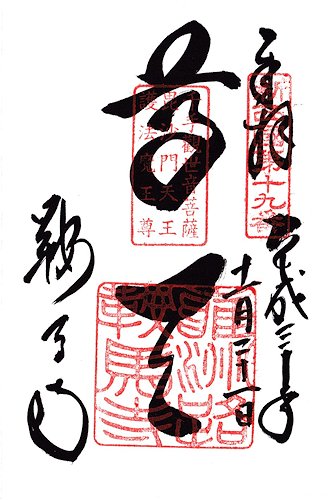 奉拝
新西國第十九番
平成三十年
十一月二十一日
尊天
千手觀世音菩薩
毘沙門天王
護法魔王尊
鞍馬寺